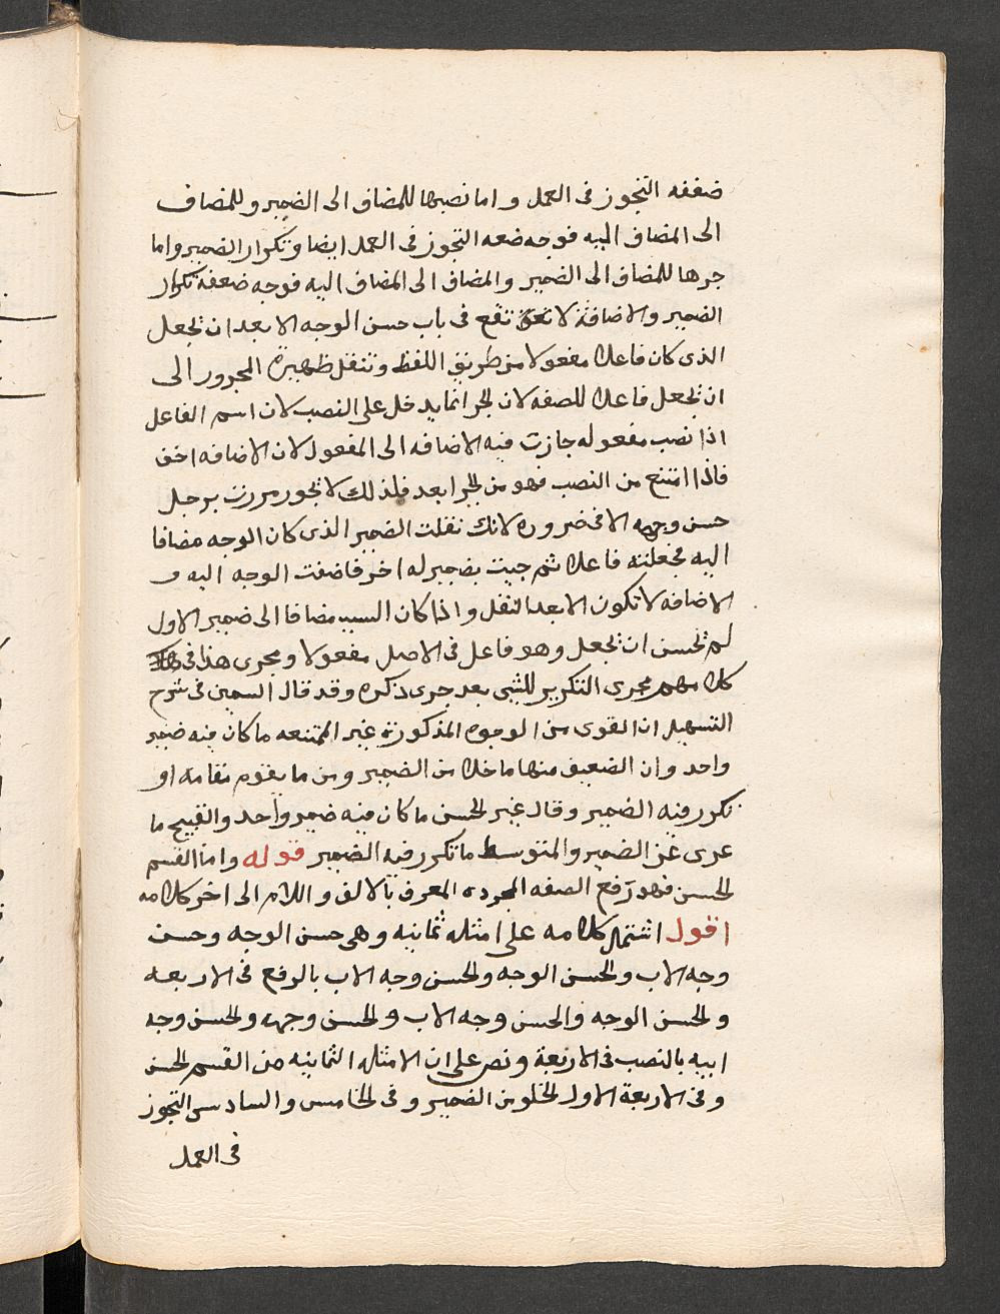 ضعفه التجوز فى العمل واما نصبها للمضاف الى الضمير وللمضاف
الى المضاف اليه فوجه ضعه التجوز فى العمل ايضا وتكرار الضمير واما
جرها للمضاف الى الضمير والمضاف الى المضاف اليه فوجه ضعفه تكرار
الضمير والاضافة لا تقع فى باب حسن الوجه الا بعد ان تجعل
الذى كان فاعلا مفعولا من طريق اللفظ وتنقل ظهيره المجرور الى
ان تجعل فاعلا للصفه لان الجر انما يدخل على النصب لان اسم الفاعل
اذا نصب مفعوله جازت فيه الاضافه الى المفعول لان الاضافه اخف
فاذا امتنع من النصب فهو من الجر ابعد فلذلك لا تجوز مررت برجل
حسن وجهه الا فى ضروره لانك نقلت الضمير الذى كان الوجه مضافا
اليه فجعلته فاعلا ثم جيت بضمير له اخر فاضفت الوجه اليه و
الاضافه لا تكون الا بعد النقل واذا كان السبب مضافا الى ضمير الاول
لم تحسن ان تجعل وهو فاعل فى الاصل مفعولا ومجرى هذا فى
كلامهم مجرى التكرير للشى بعد جرى ذكره وقد قال السمين فى شرح
التسهيل ان القوى من الوجوه المذكورة غير الممتنعه ما كان فيه ضمير
واحد وان الضعيف منها ما خلا من الضمير ومن ما يقوم مقامه او
تكرر فيه الضمير وقال غير الحسن ما كان فيه ضمير واحد والقبيح ما
عرى عن الضمير والمتوسط ما تكرر فيه الضمير قوله واما القسم
الحسن فهو رفع الصفه المجرده المعرف بالالف واللام الى اخر كلامه
اقول اشتمل كلامه على امثله ثمانيه وهى حسن الوجه وحسن
وجه الاب والحسن الوجه والحسن وجه الاب بالرفع فى الاربعه
والحسن الوجه والحسن وجه الاب والحسن وجهه والحسن وجه
ابيه بالنصب فى الاربعة ونص على ان الامثله الثمانيه من القسم الحسن
وفى الاربعة الاول لخلو من الضمير وفى الخامس والسادس التجوز
فى العمل